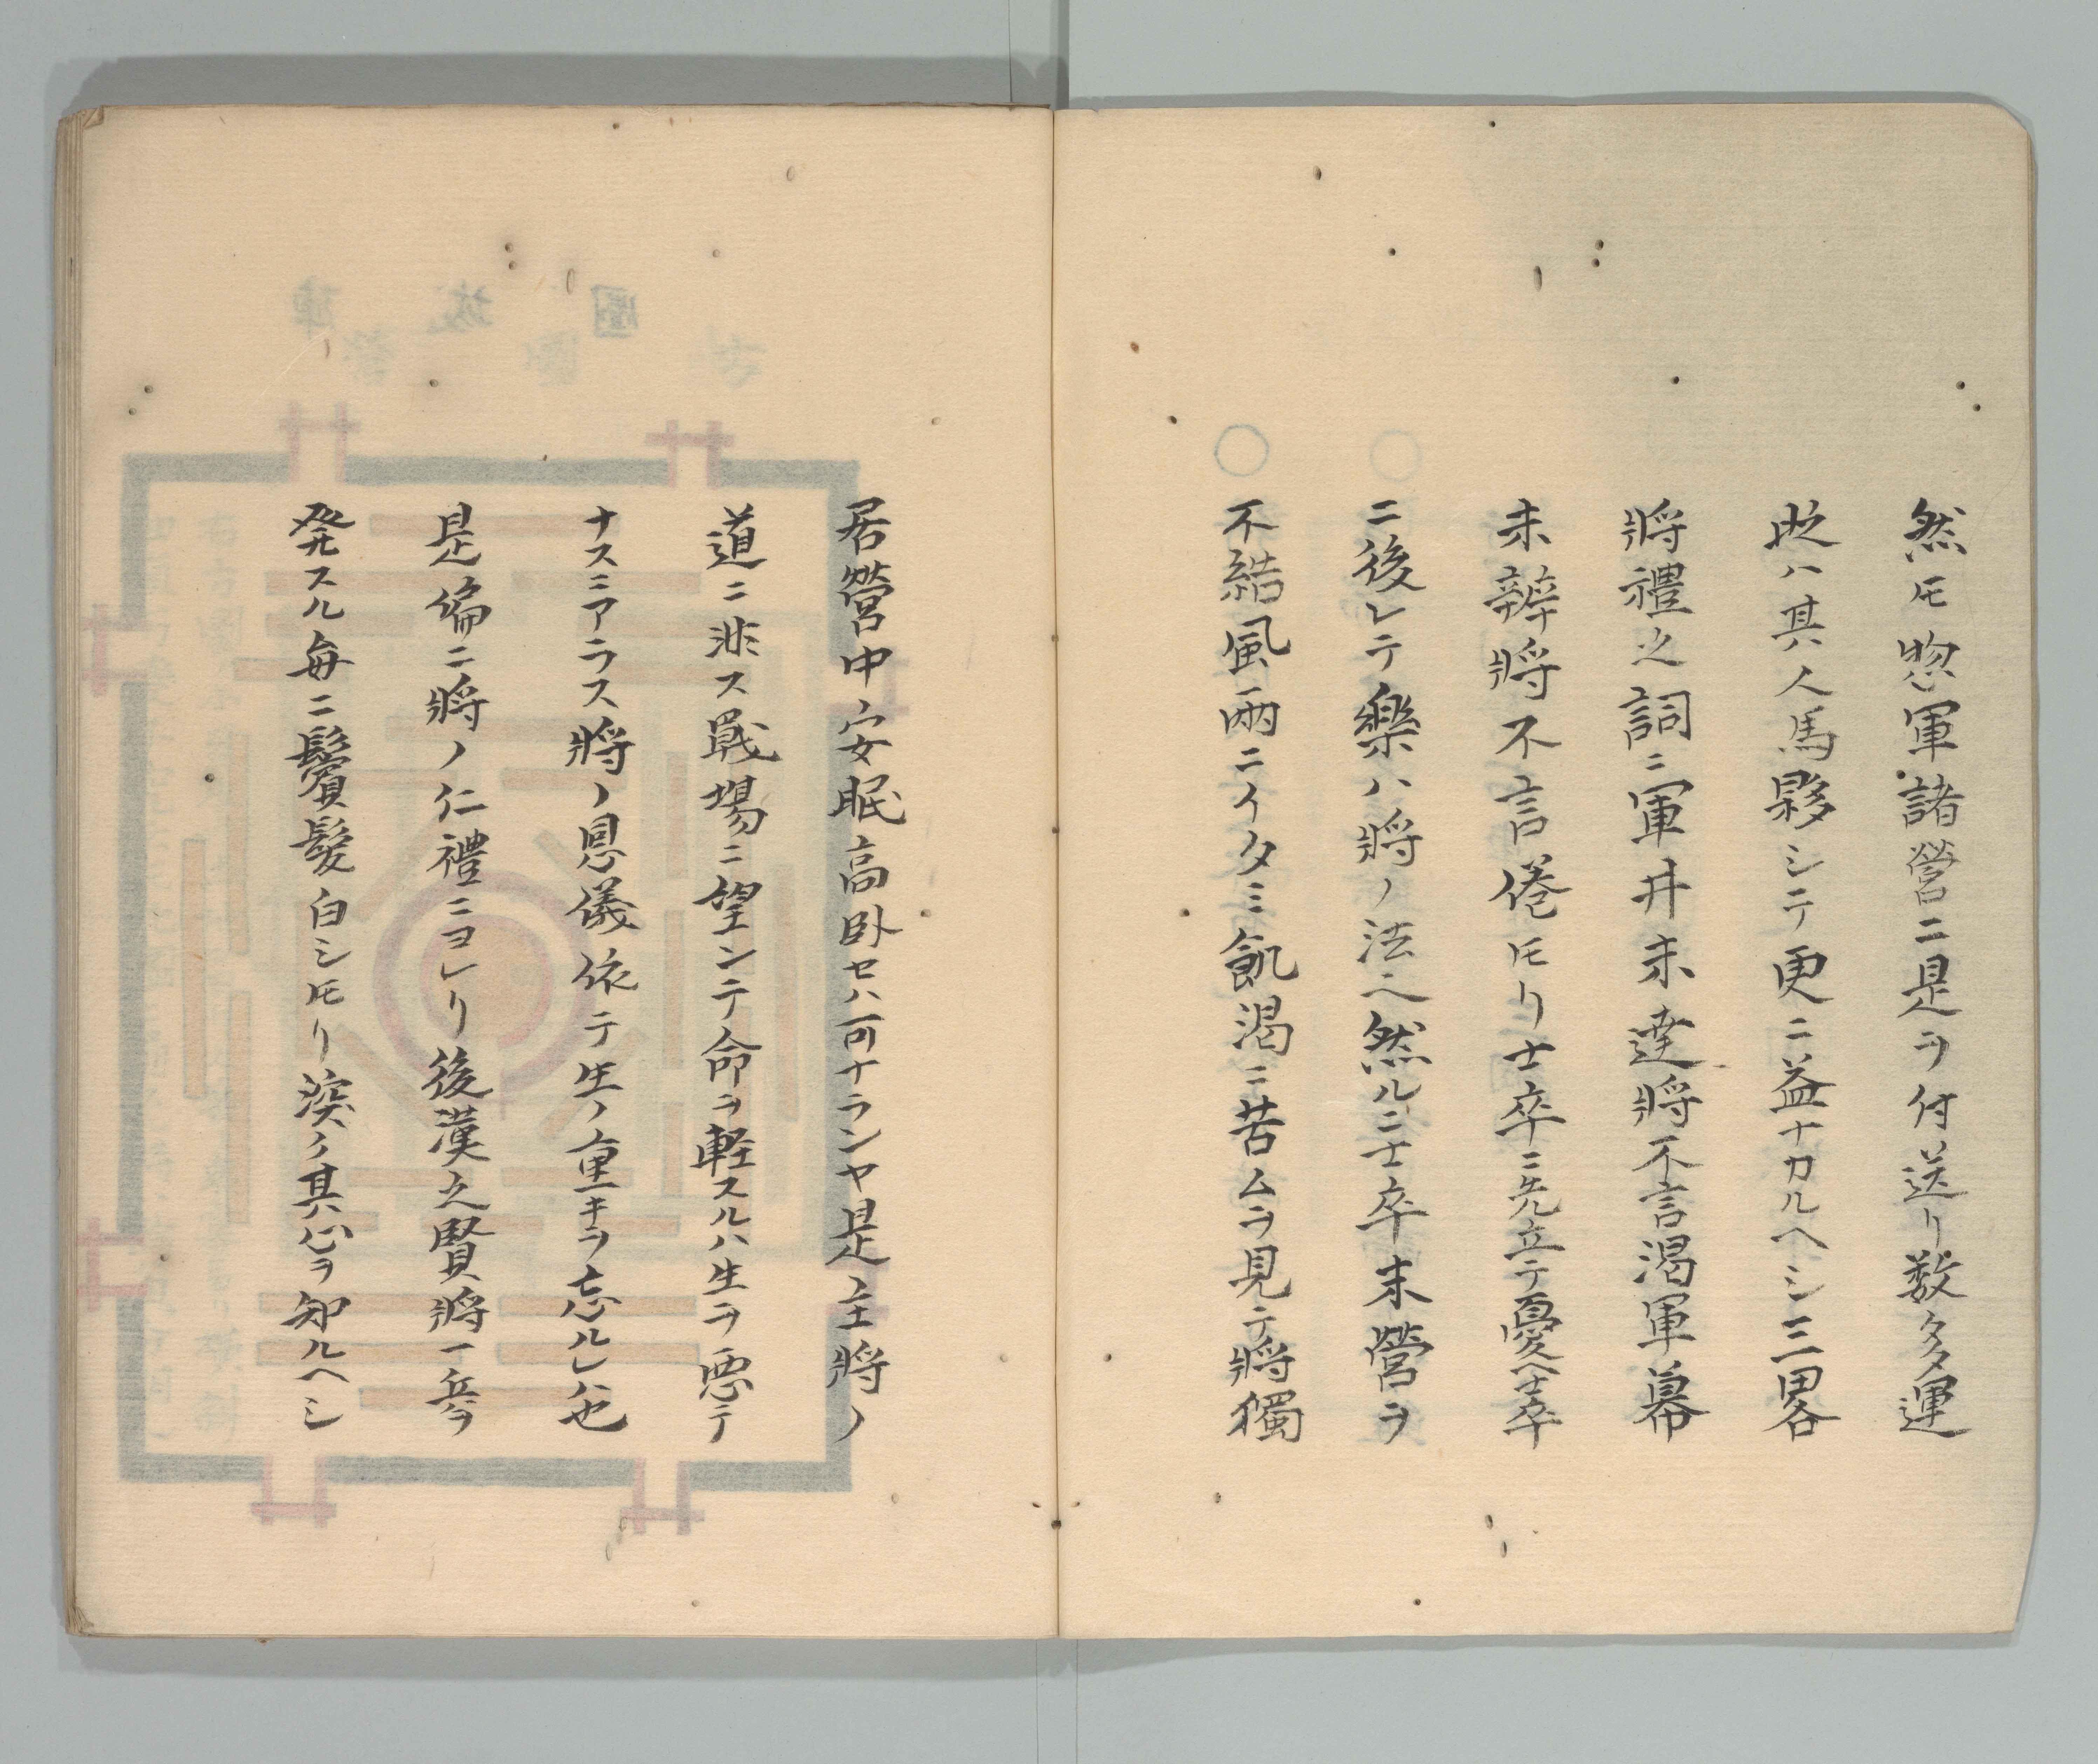 然𪜈惣軍諸營ニ是ヲ付送リ数多運
此ハ其人馬夥シテ更ニ益ナカルヘシ三畧
將禮之詞ニ軍井未達將不言渇軍幕
未辨將不言倦𪜈リ士卒ニ先立テ憂へ士卒
ニ後レテ樂ハ將ノ法へ然ルニ士卒未營ヲ
不結風雨ニイタミ飢渇ニ苦ムヲ見テ將獨
居營中安眠高卧セハ可ナランヤ是主將ノ
道ニ非ス戰場ニ望ンテ命ヲ軽スルハ生ヲ悪テ
ナスニアラス將ノ恩儀依テ生ノ重キヲ忘ルレハ也
是偏ニ將ノ仁禮ニヨレリ後漢之賢將一兵ヲ
発スル毎ニ鬢髮白シ𪜈リ深ノ其心ヲ知ルヘシ